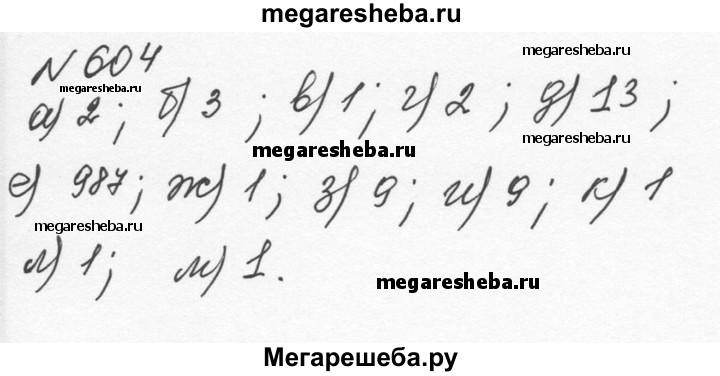 megaresheba.ru
N 604
megaresheba.ru
megaresheba.ru
а) 2; б) 3; в) 1; г) 2; д) 13;
megaresheba.ru
megaresheba.ru
е) 987; ж) 1; з) 9; и) 9; к) 1
megaresheba.ru
л) 1; м) 1.
megaresheba.ru
Мегарешеба.ру